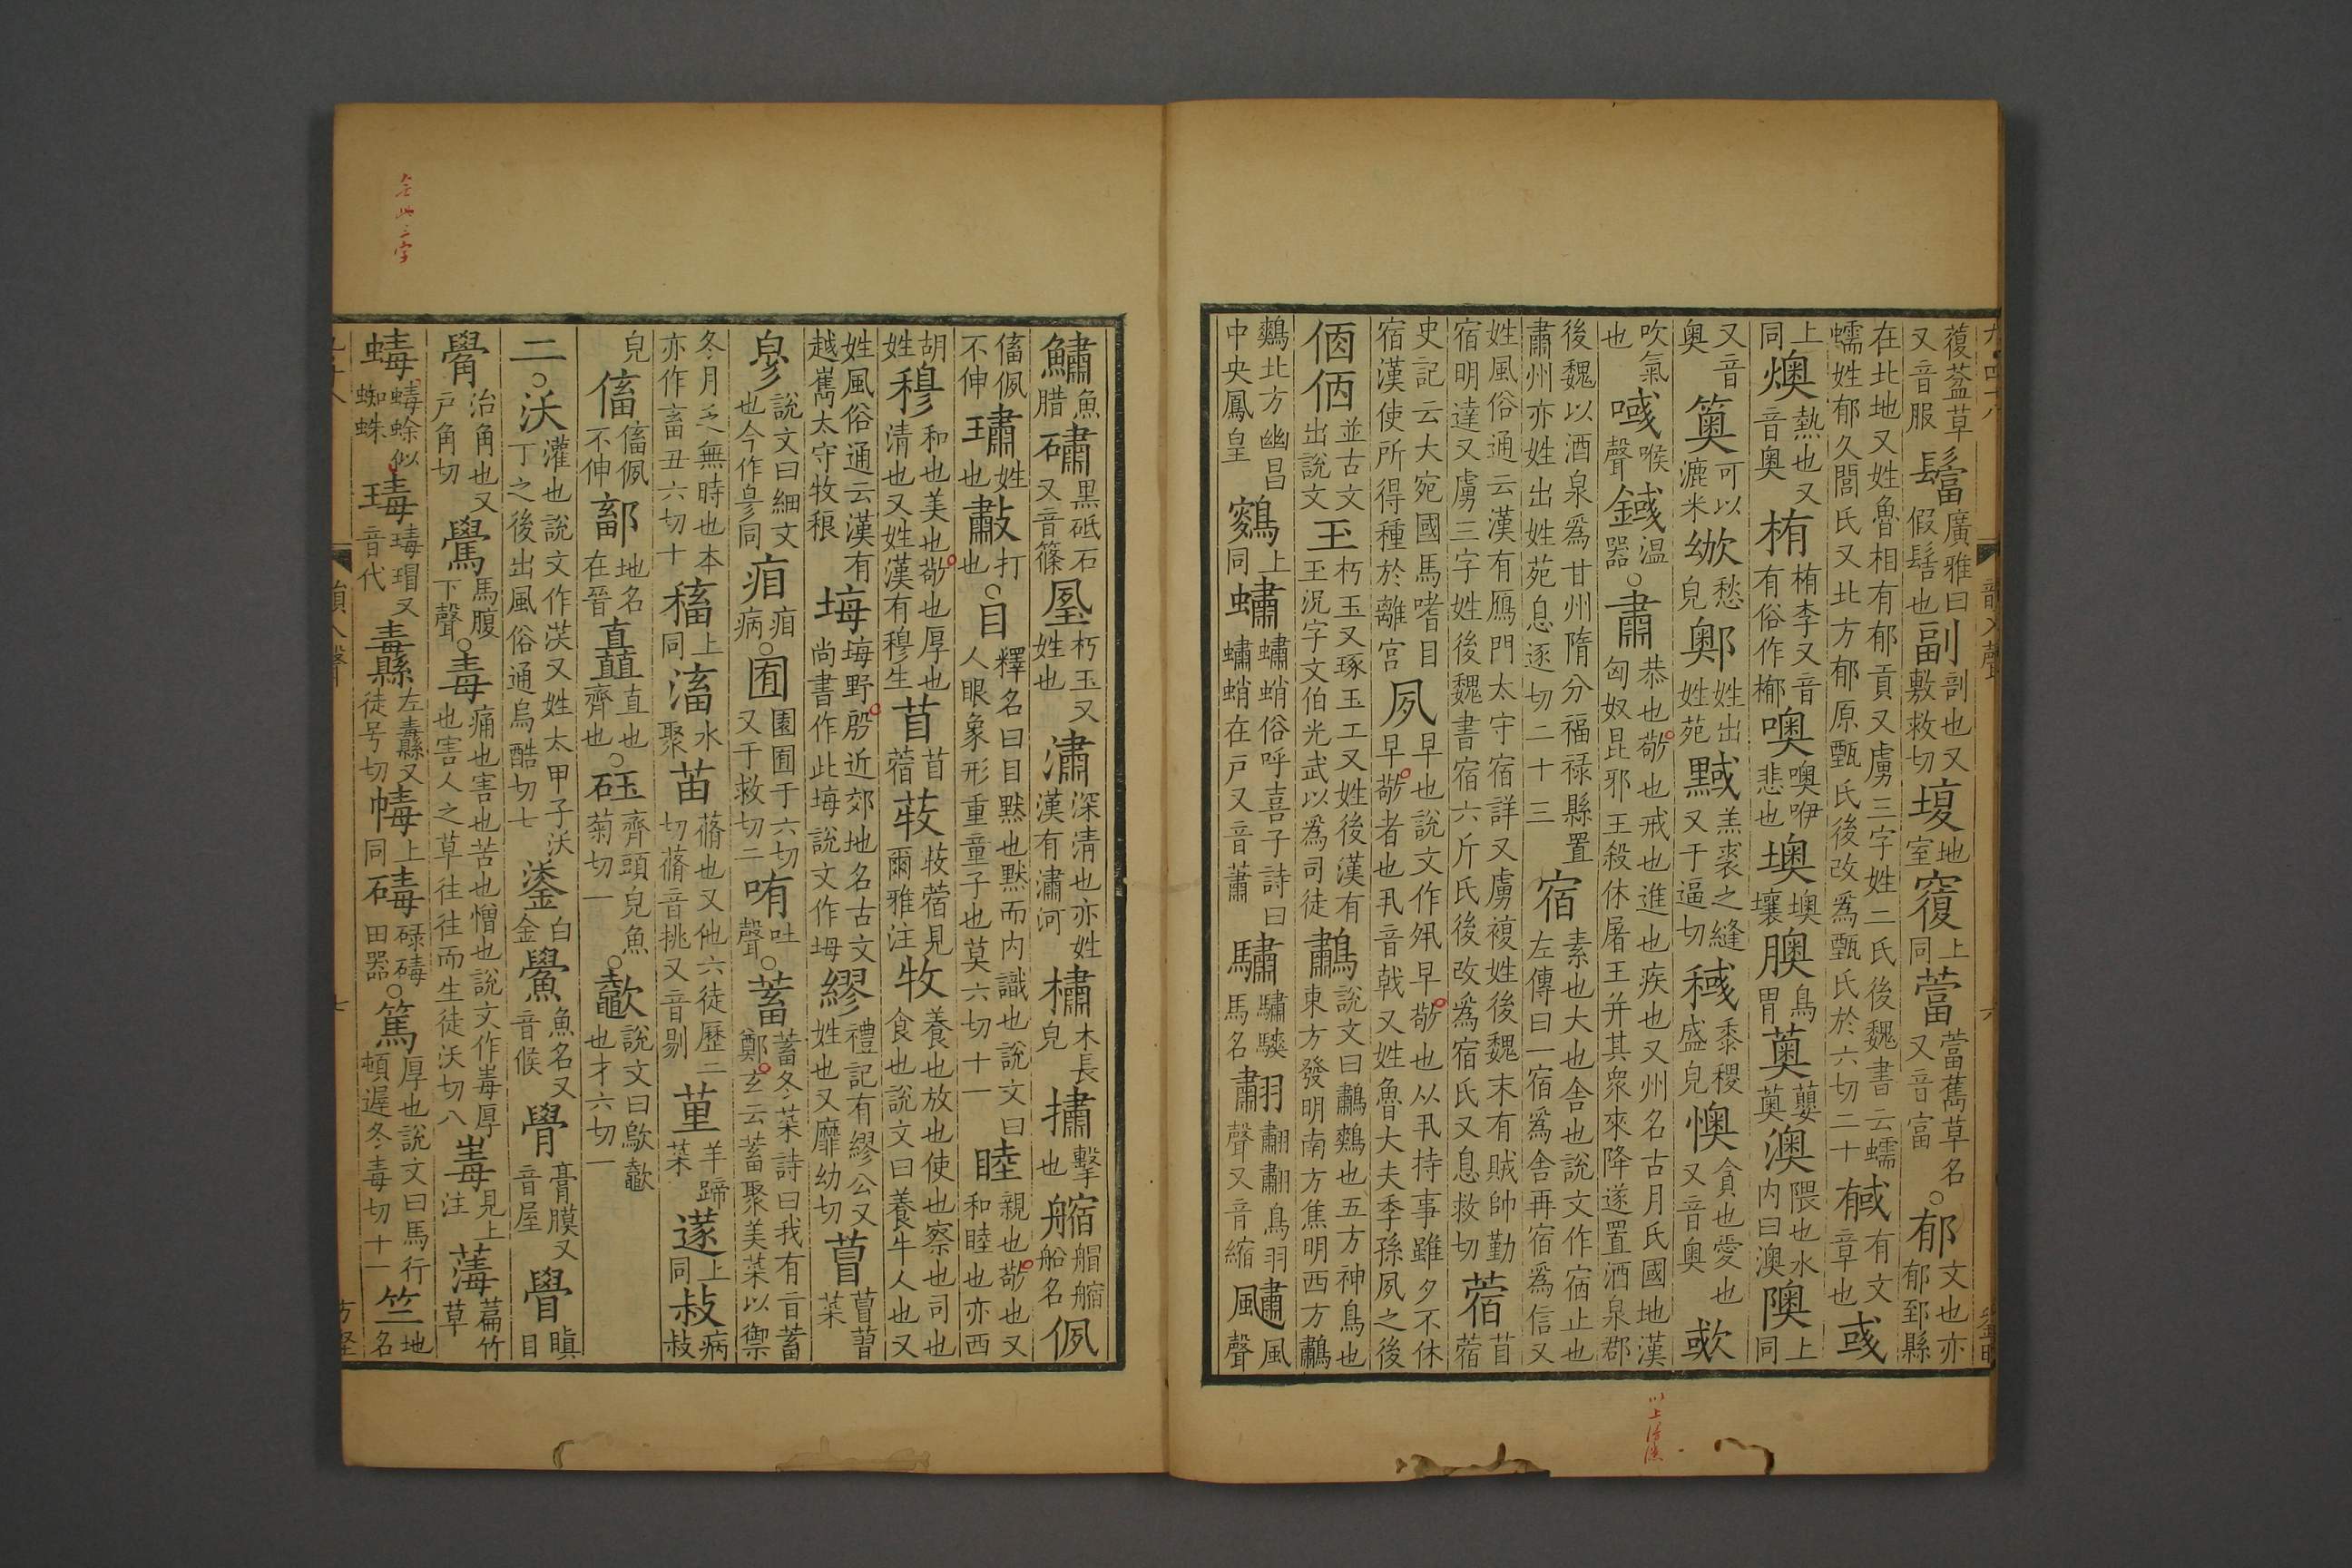 葍葐草又音服鬴廣雅曰假髻也副剖也又敷救切𡎪地室㙏上同葍葍䔰草名又音富○郁文也亦郁郅縣
在北地又姓魯相有郁貢又虜三字姓二氏後魏書云蠕蠕姓郁久閭氏又北方郁原甄氏後改爲甄氏於六切二十戫有文章也彧
上同燠熱也又音奧栯栯李又音有俗作㮋噢噢咿悲也墺墺壤䐿鳥胃薁蘡薁澳隈也水内曰澳隩上同
又音奧䉛可以漉米㤢愁皃鄓姓出姓苑䵥羔裘之縫又于逼切稢黍稷盛皃懊貪也愛也又音奧㰲
吹氣也㖪喉聲䤋温器○肅恭也敬也戒也進也疾也又州名古月氏國地漢匈奴昆邪王殺休屠王并其衆來降遂置酒泉郡
後魏以酒泉爲甘州隋分福禄縣置肅州亦姓出姓苑息逐切二十三宿素也大也舍也說文作㝛止也左傳曰一宿爲舍再宿爲信又
姓風俗通云漢有鴈門太守宿詳又虜複姓後魏末有賊帥勤宿明達又虜三字姓後魏書宿六斤氏後改爲宿氏又息救切蓿苜蓿
史記云大宛國馬嗜目宿漢使所得種於離宮夙早也說文作𡖊早敬也从丮持事雖夕不休早敬者也丮音戟又姓魯大夫季孫夙之後
𠈇𠉦並古文出說文玊朽玉又琢玉工又姓後漢有玉況字文伯光武以爲司徒鷫說文曰鷫鷞也五方神鳥也東方發明南方焦明西方鷫
鷞北方幽昌中央鳳皇鷫上同蟰蟰蛸俗呼喜子詩曰蟰蛸在戶又音蕭驌驌驦馬名翿翿翿鳥羽聲又音縮飍風聲
鱐魚腊䃤黑砥石又音篠𡉷朽玉又姓也潚深清也亦姓漢有潚河橚木長皃㩋擊也䑿艒䑿船名㑉
傗㑉不伸璛姓也𢿾打也○目釋名曰目黙也黙而内識也說文曰人眼象形重童子也莫六切十一睦親也敬也又和睦也亦西
胡姓穆和也美也敬也厚也清也又姓漢有穆生苜苜蓿莯莯蓿見爾雅注牧養也放也使也察也司也食也說文曰養牛人也又
姓風俗通云漢有越嶲太守牧稂坶坶野殷近郊地名古文尚書作此坶說文作坶繆禮記有繆公又姓也又靡幼切䒵䒵䓿菜
㣎說文曰細文也今作㣎同㾇㾇病○囿園囿于六切又于救切二哊吐聲○蓄蓄冬菜詩曰我有旨蓄鄭玄云蓄聚美菜以禦
冬月乏無時也本亦作畜丑六切十稸上同滀水聚苗蓨也又他六徒歷二切蓨音挑又音剔堇羊蹄菜蓫上同㱿病㱿
皃傗傗㑉不伸鄐地名在晉矗直也齊也○砡齊頭皃魚菊切一○歜說文曰歍歜也才六切一
二○沃灌也說文作䓇又姓太甲子沃丁之後出風俗通烏酷切七鋈白金鱟魚名又音候䯊膏膜又音屋䁨瞋目
觷治角也又戶角切鷽馬腹下聲○毒痛也害也苦也憎也說文作䓯厚也害人之草往往而生徒沃切八䓯見上注䔱萹竹草
蝳蝳蜍似蜘蛛瑇瑇瑁又音代纛左纛縣又徒号切㡹上同碡碌碡田器○篤厚也說文曰馬行頓遲冬毒切十一竺地名